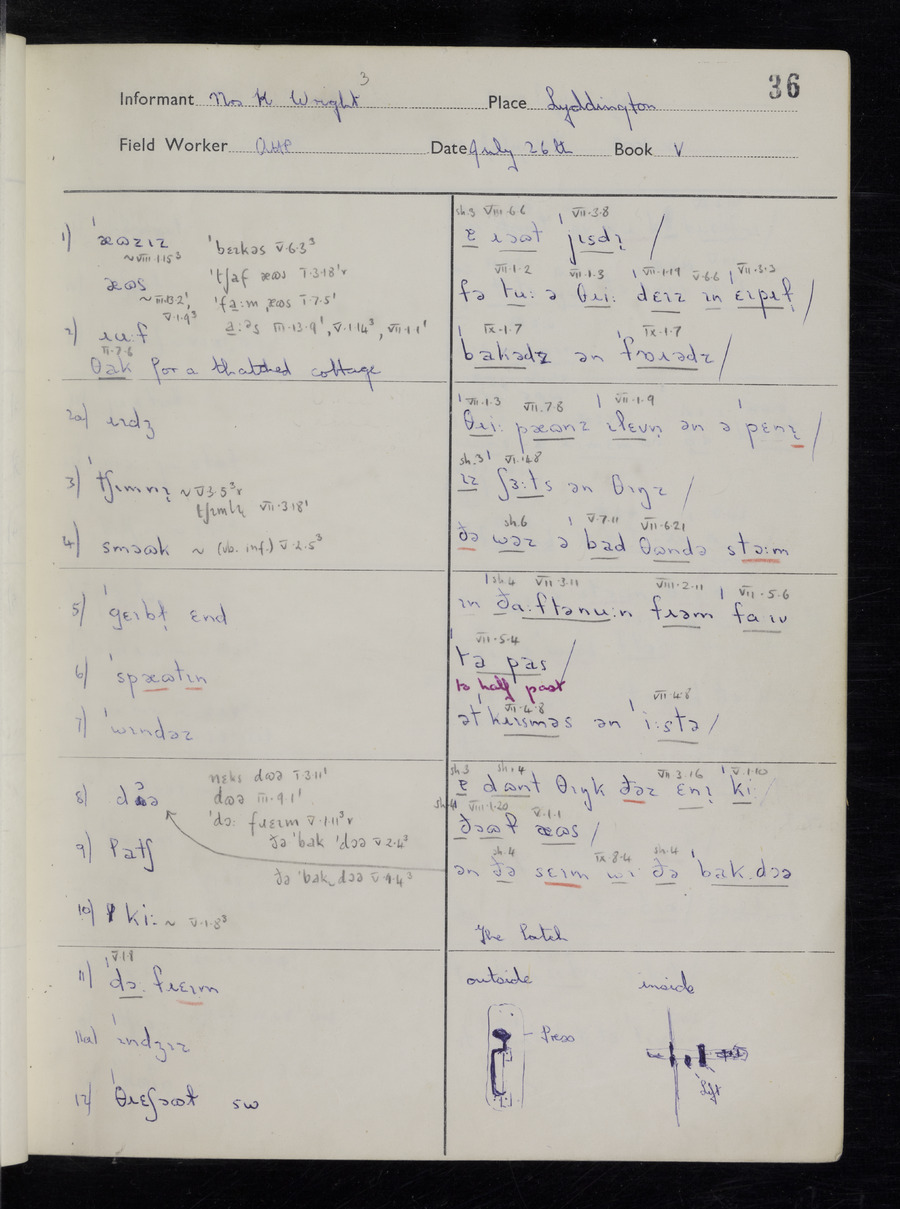 36
Informant Mrs K Wright 3 Place Lyddington
Field Worker AHP Date July 26th Book V
1) ˈæʊzɪz
~ VIII.1.15³
ˈbeɪkəs V.6.3³
æʊs
ˈtʃaf æʊs I.3.18ˈr
~ III.13.2ˈ,
V.1.9³
ˈfɑːm ˌæʊs I.7.5ˈ
ɑːəs III.13.9ˈ, V.1.14³, VII.1.1ˈ
2) ɹuːf
II.7.6
θak for a thatched cottage
2a) ɹɪdʒ
3) ˈtʃɪmnɪ̣ ~ V.3.5³r
tʃɪmlɪ̣ VII.3.18ˈ
4) sməʊk ~ (vb. inf.) V.2.5³
5) ˈgeɪbɫ̣ end
6) ˈspæʊtɪn
7) ˈwɪndəz
8) dɔə
neks dʊə I.3.11ˈ
dʊə III.9.1ˈ
ˈdɔ: fɹeɪm V.1.11³r
ðə ˈbak ˈdɔə V.2.4³
ðə ˈbak ˌdɔə V.9.4³
9) latʃ
10) kiː ~ V.1.8³
11) V.1.8
ˈdɔ. fɹeɪm
11a) ˈɪndʒɪz
12) ˈθɹeʃəʊɫ sw
sh.3 VIII.6.6 VII.3.8
ɐ ɹəʊt ˈjɪsdɪ̣ /
VII.1.2 VII.1.3 VII.1.19 V.6.6 VII.3.3
fə tuː ə θɹiː ˈdeɪz ɪn ˈeɪpɹɪɫ /
IX.1.7 IX.1.7
ˈbakədz ən ˈfɒɹədz /
VII.1.3 VII.7.8 VII.1.9
ˈθɹiː pæʊnz ɪˈlevn̩ ən ə ˈpenɪ̣ /
sh.3 VI.14.8
ɪz ʃɜːts ən θɪŋz /
sh.6 V.7.11 VII.6.21
ðə wəz ə ˈbad θʊndə stɔːm
sh.4 VII.3.11 VIII.2.11 VII.5.6
ɪn ˈðɑːftənuːn fɹəm ˈfaɪv
VII.5.4
tə ˈpas /
to half past
VII.4.8 VII.4.8
ət ˈkɹɪsməs ən ˈiːstə /
sh.3 sh.4 VII.3.16 V.1.10
ɐ dʊnt θɪŋk ðəz enɪ̣ ˈkiː /
sh.4 VIII.1.20 V.1.1
ðəʊɫ æʊs /
sh.4 IX.8.4 sh.4
ən ðə seɪm wɪ ðə ˈbak.dɔə
The latch
outside inside
Press
Lift